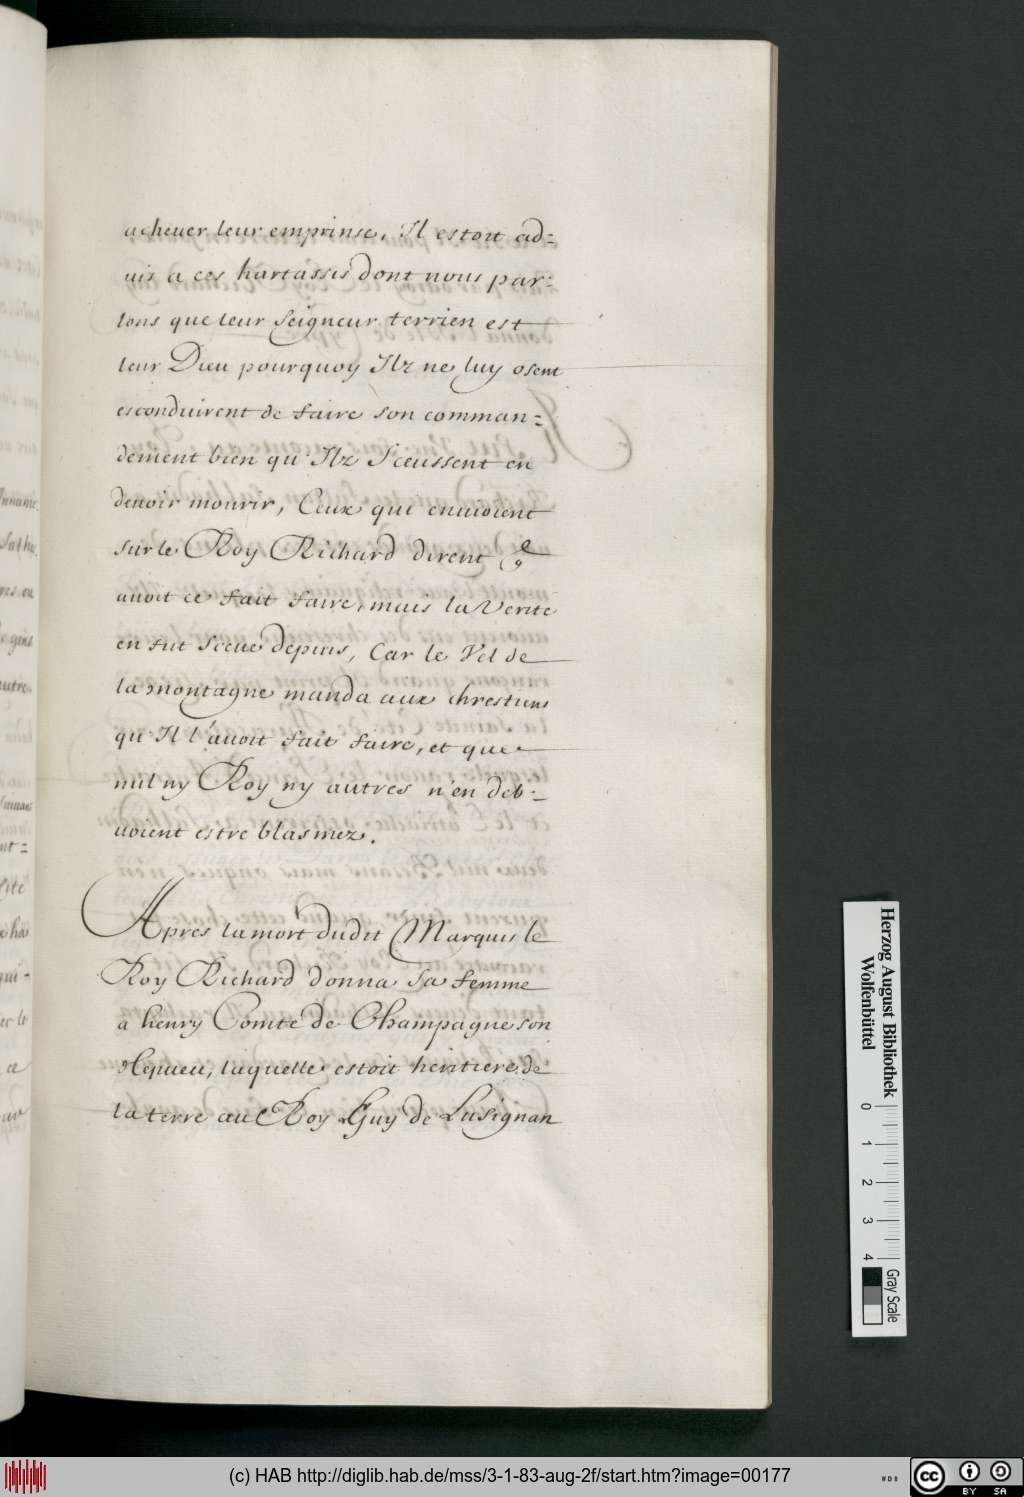 acheuer leur emprinse, Il estoit ad=
uis a ces hartassis dont nous par=
lons que leur Seigneur terrien est
leur Dieu pourquoy Ilz ne luy osent
esconduirent de faire son comman=
dement bien qu'Ilz Sceussent en
deuoir mourir, Ceux qui enuioient
sur le Roy Richard dirent
auoit ce fait faire, mais la Verité
en fut Sceue depuis, Car le Vel de
la montagne manda aux chrestiens
qu'Il l'auoit fait faire, et que
nul ny Roy ny autres n'en deb=
uoient estre blasmez.
Apres la mort dudit Marquis le
Roy Richard donna Sa femme
a henry Comte de Champagne son
Nepueu, laquelle estoit heritiere de
la terre au Roy Guy de Lusignan
Herzog August Bibliothek
Wolfenbüttel
0 1 2 3 4
Gray Scale
(c) HAB http://diglib.hab.de/mss/3-1-83-aug-2f/start.htm?image=00177
WDB
cc BY SA